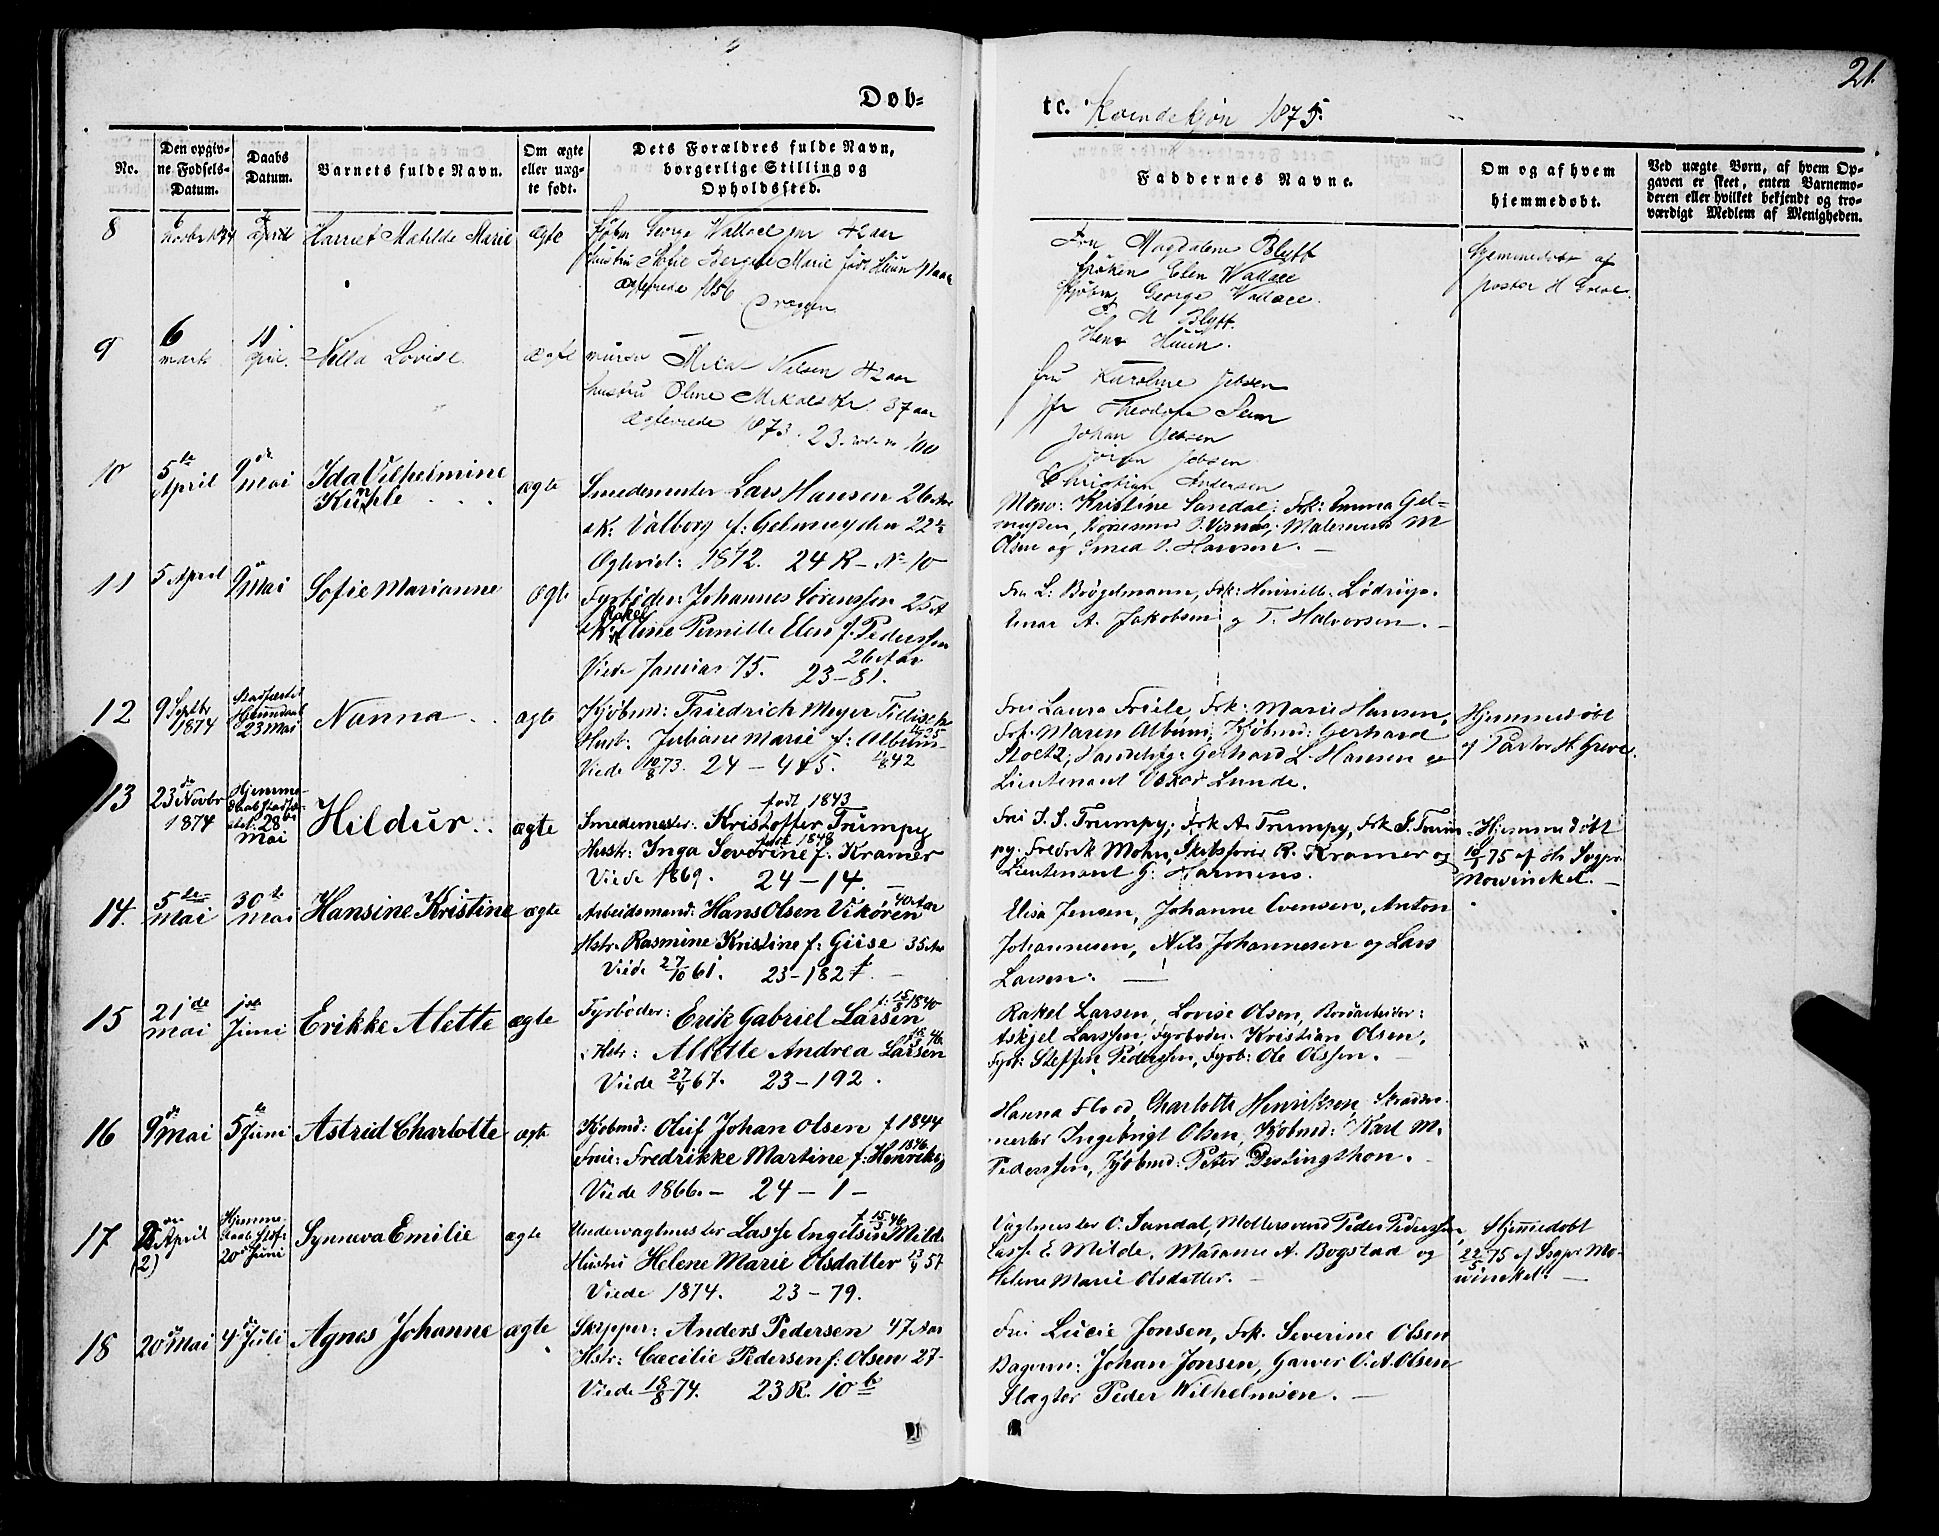 21.
Døb=
te. Kvindekjøn 1875.
No.
Den opgiv-
ne Fødsels-
Datum.
Daabs
Datum.
Barnets fulde Navn.
Om ægte
eller uæg-
te født.
Dets Forældres fulde Navn,
borgerlige Stilling og
Opholdssted.
Faddernes Navne.
Om og af hvem
hjemmedøbt.
Ved uægte Børn, af hvem Op-
gaven er skeet, enten Barnemo-
deren eller hvilket bekjendt og tro-
værdigt Medlem af Menigheden.
8
6
april
Harriet Matilde Marie
ægte
Kjøbm George Wallace jnr 42 aar
hustru Sofie Bergete Marie født Huun
Ægteviede 1856
Dræggen
Fru Magdalene Blytt
frøken Elen Wallace
Kjøbm George Wallace.
M Blytt.
Huun.
Hjemmedøbt af
pastor H Greve.
9
6
marts
11
april.
Nella Lovise.
ægte
murer Mikal Nilsen 42 aar
hustru Oline Mikalsdr. 37 aar
Ægteviede 1873. 23.
fru Karoline Jebsen
Theodora
Johan Jebsen
Jebsen
Christian Andersen
10
5te
April
9de
mai
Ida Vilhelmine
Kühle
ægte
Smedemester Lars Hansen 26 Aar
& K. Valborg f: Gelmuyden 22
Ægteviet: 1872. 24 R - No 10
Kristine Sandal; Frk: Emma Gel-
muyden,
Olsen og Smed O. Hansen. —
11
5 April
9de mai
Sofie Marianne
Ægte
Fyrbøder: Johannes Sørenssen 25 A
Rakel
& K: Oline Pernille Elen f. Pederssen
26 Aar
Viede Januar 75. 23-81.
Fru L: Brøgelmann, Frk: Henriette
A. Jakobsen og T. Halvorsen. —
12
9 Septbr
1874
Stadfæstet
Hjemmedaab
23 Mai
Nanna
ægte
Kjøbmd: Friedrich Meyer
Hust: Juliane Marie f: Album
Viede 10/8 73. 24 - 4
Fru Laura Friele, Frk: Marie Hansen,
Frk: Maren Album, Kjøbmd: Gerhard
Stoltz, Gerhard L. Hansen og
Lieutenant Oskar Lunde.
Hjemmedøbt
af Pastor H. Greve.
13
23de Novbr
1874
Hjemme-
28de
Mai
Hildur
ægte
født 1843
Smedemester: Kristoffer Trumpy
født 1848
Hustr: Inga Severine f: Kramer
Viede 1869. 24 - 14. —
Fru S. S. Trumpy; Frk A. Trumpy, Frk S. Trum-
py. Fredrik Mohn, Skibsfører R. Kramer og
Lieutenant G. Harmens.
Hjemmedøbt
10/1 75 af Hr Sogpr.
Mowinckel. —
14.
5te
Mai
30te
Mai
Hansine Kristine
ægte
40 Aar
Arbeidsmand: Hans Olsen Vikøren
Hstr. Rasmine Kristine f: Giise 35 Aar
Viede 27/10 61. 23-182
Elisa Jensen, Johanne Evensen, Anton
Johannesen, Nils Johannesen og Lars
Larsen. —
15
21de
Mai
1ste
Juni
Erikke Alette
ægte
Fyrbøder: Erik Gabriel Larsen
Hstr: Alette Andrea Larsen
Viede 27/ 67. 23-192.
Rakel Larsen, Lovise Olsen,
Askjel Larssen, Fyrbøder: Kristian Olsen,
Fyrb: Steffen Pederssen, Fyrb: Ole Olssen. —
16
9de Mai
5te Juni
Astrid Charlotte
ægte
Kjøbmd: Oluf Johan Olsen f 1844
f 1846
Frue: Fredrikke Martine f: Henriks
Viede 1866. — 24 — 1 —
Hanna Flood, Charlotte Henriksen, Skrædder-
mester Ingebrigt Olsen, Kjøbmd: Karl M.
Pederssen, Kjøbmd: Peter
17
April
(2)
Hjemme-
20de Juni
Synneva Emilie
ægte
f. 15/3 46
Undervagtmester Lasse Engelsen Milde
Hustru Helene Marie Olsdatter 57
Viede 1874. 23-79.
Vagtmester O. Sandal, Møllersvend Peder Pederssen,
Lasse E. Milde, Madame A. Bogstad og
Helene Marie Olsdatter. —
Hjemmedøbt
22/5 75 af Sogpr Mo-
winckel. —
18
20de Mai
4de Juli
Agnes Johanne
ægte
Skipper: Anders Pedersen 47 Aar
Hstr: Cæcilie Pedersen f: Olsen 27
Viede 18/8 74. 23 R. 10 b
Fru Lucie Jonsen, Frk. Severine Olsen
Bagerm: Johan Jonsen, Garver O. A. Olsen
Slagter Peder Wilhelmsen. —